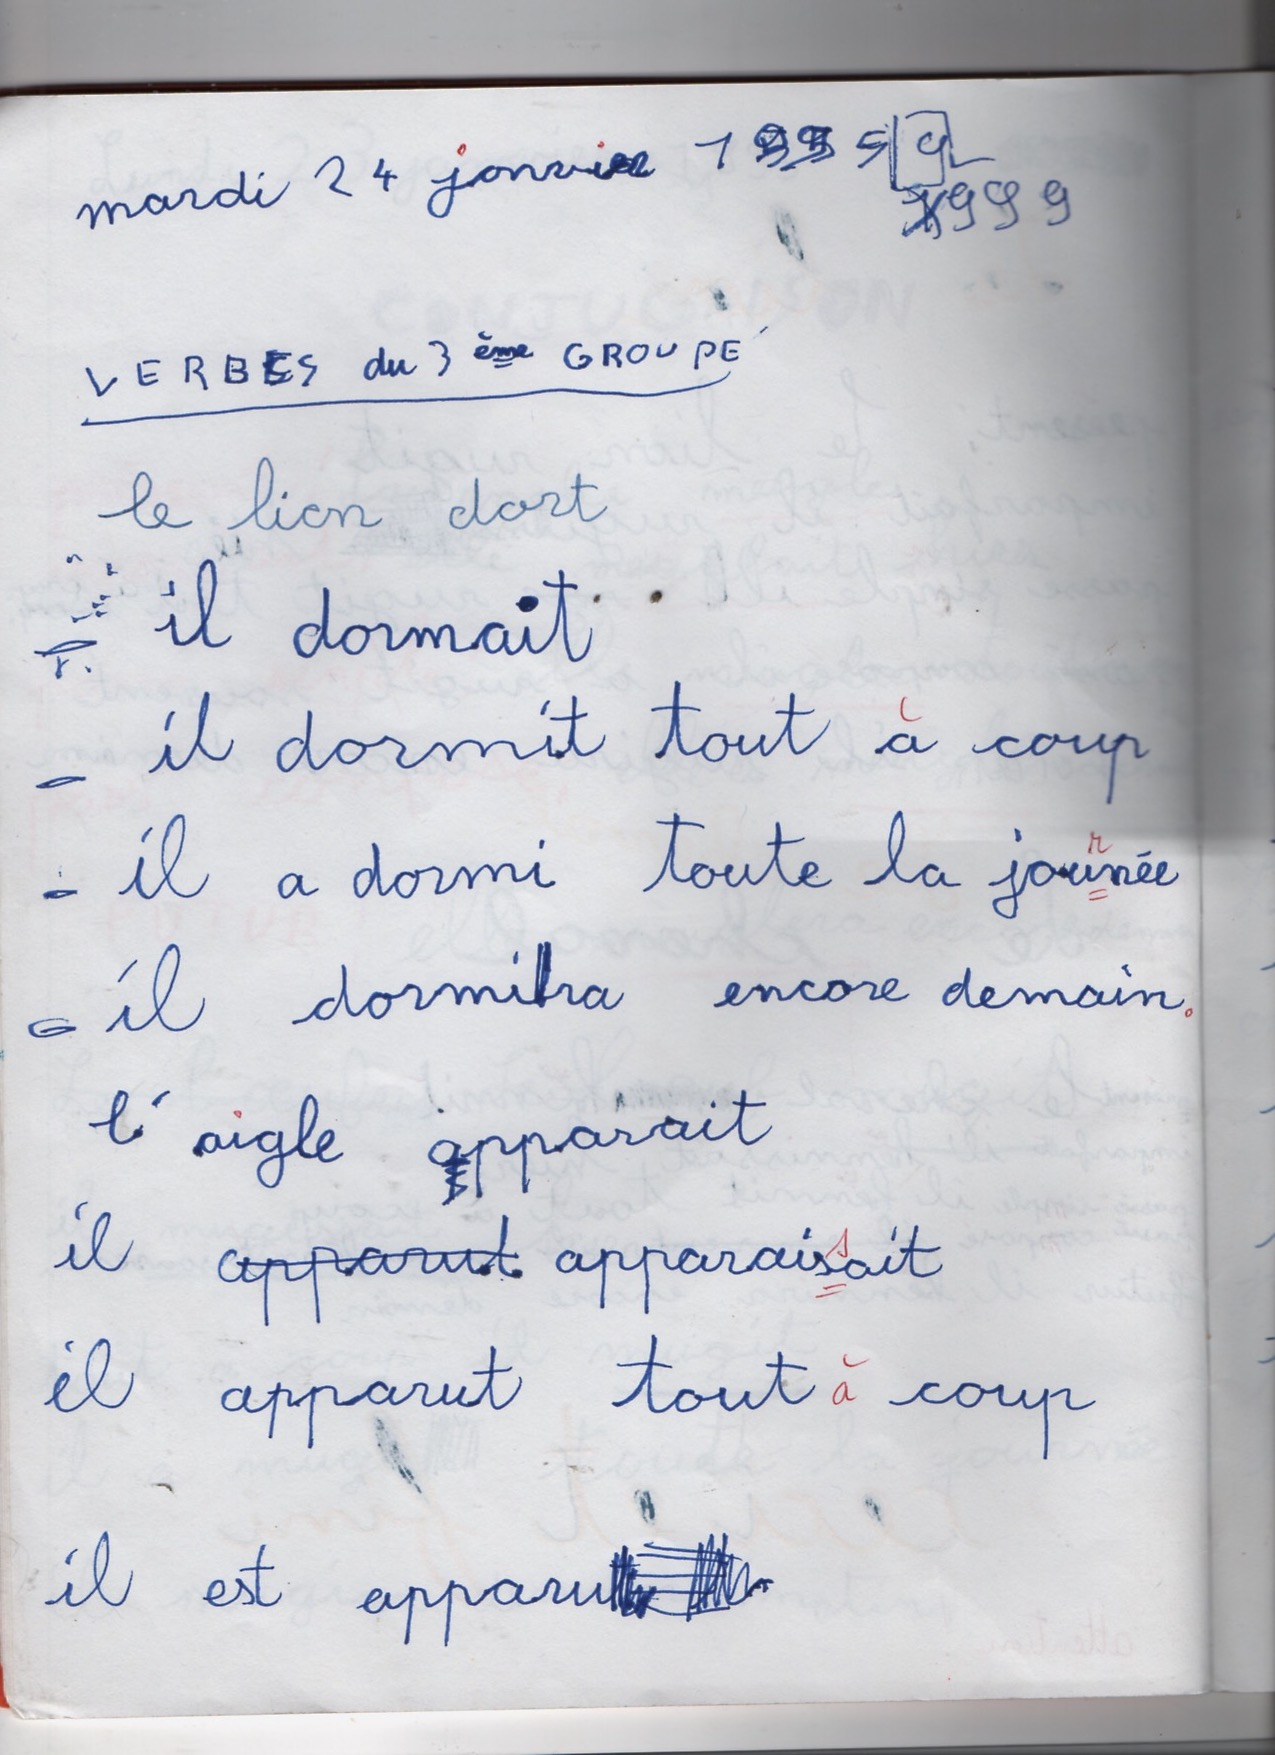 mardi 24 janvier 1995
1999
VERBES du 3ème GROUPE
le lion dort
il dormait
- il dormit tout à coup
- il a dormi toute la journée
- il dormira encore demain.
l'aigle apparait
il apparut apparaissait
il apparut tout à coup
il est apparu